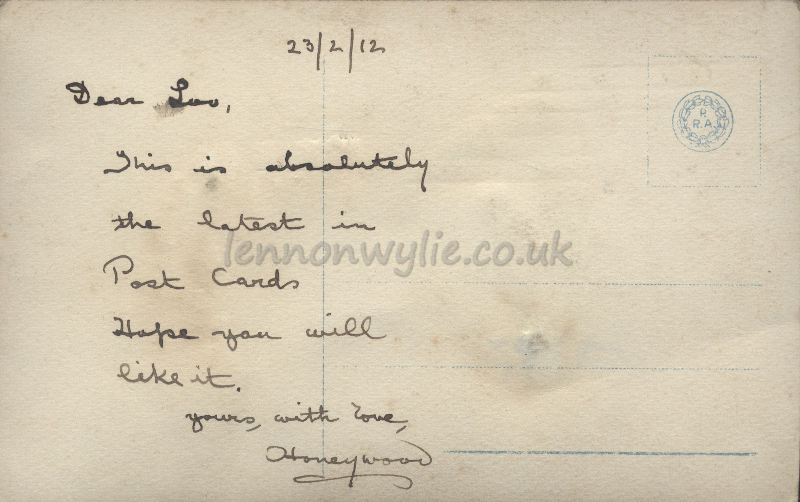 23/2/12
Dear Lou,
R
R.A.
This is absolutely
the latest in
lennonwylie.co.uk
Post Cards
Hope you will
like it.
yours, with love,
Honeywood